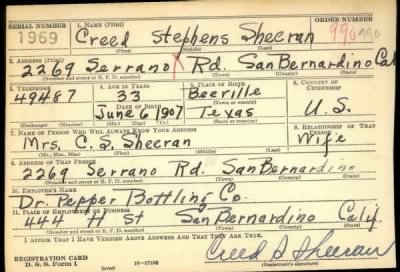 SERIAL NUMBER 1. NAME (Print) ORDER NUMBER
1969 Creed Stephens Sheeran 990
(First) (Middle) (Last)
2. ADDRESS (Print)
2269 Serrano Rd. San Bernardino Cal
(Number and street or R. F. D. number) (Town) (County) (State)
3. TELEPHONE 4. AGE IN YEARS 5. PLACE OF BIRTH 6. COUNTRY OF CITIZENSHIP
49487 33 Beeville
DATE OF BIRTH (Town or county)
June 6 1907 Texas U.S.
(Exchange) (No.) (Mo.) (Day) (Yr.) (State or country)
7. NAME OF PERSON WHO WILL ALWAYS KNOW YOUR ADDRESS 8. RELATIONSHIP OF THAT PERSON
Mrs. C. S. Sheeran Wife
(Mr., Mrs., Miss) (First) (Middle) (Last)
9. ADDRESS OF THAT PERSON
2269 Serrano Rd. San Bernardino
(Number and street or R. F. D. number) (Town) (County) (State)
10. EMPLOYER'S NAME
Dr. Pepper Bottling Co.
11. PLACE OF EMPLOYMENT OR BUSINESS
444 H St San Bernardino Calif.
(Number and street or R. F. D. number) (Town) (County) (State)
I AFFIRM THAT I HAVE VERIFIED ABOVE ANSWERS AND THAT THEY ARE TRUE.
REGISTRATION CARD
D. S. S. Form 1 16-17105 Creed S Sheeran
(Registrant's signature)